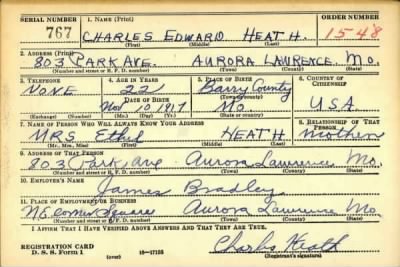 SERIAL NUMBER 1. NAME (Print) ORDER NUMBER
767 CHARLES EDWARD HEATH. 1548
(First) (Middle) (Last)
2. ADDRESS (Print)
803 PARK AVE. AURORA LAWRENCE, MO.
(Number and street or R. F. D. number) (Town) (County) (State)
3. TELEPHONE 4. AGE IN YEARS 5. PLACE OF BIRTH 6. COUNTRY OF CITIZENSHIP
NONE 22 Barry County
DATE OF BIRTH (Town or county)
Nov 10 1917 Mo. USA
(Exchange) (Number) (Mo.) (Day) (Yr.) (State or country)
7. NAME OF PERSON WHO WILL ALWAYS KNOW YOUR ADDRESS 8. RELATIONSHIP OF THAT PERSON
MRS Ethel HEATH Mother
(Mr., Mrs., Miss) (First) (Middle) (Last)
9. ADDRESS OF THAT PERSON
803 Park Ave Aurora Lawrence Mo.
(Number and street or R. F. D. number) (Town) (County) (State)
10. EMPLOYER'S NAME
James Bradley
11. PLACE OF EMPLOYMENT OR BUSINESS
N.E. Corner Square Aurora Lawrence Mo.
(Number and street or R. F. D. number) (Town) (County) (State)
I AFFIRM THAT I HAVE VERIFIED ABOVE ANSWERS AND THAT THEY ARE TRUE.
REGISTRATION CARD
D. S. S. Form 1 (over) 16—17105 Charles Heath
(Registrant's signature)